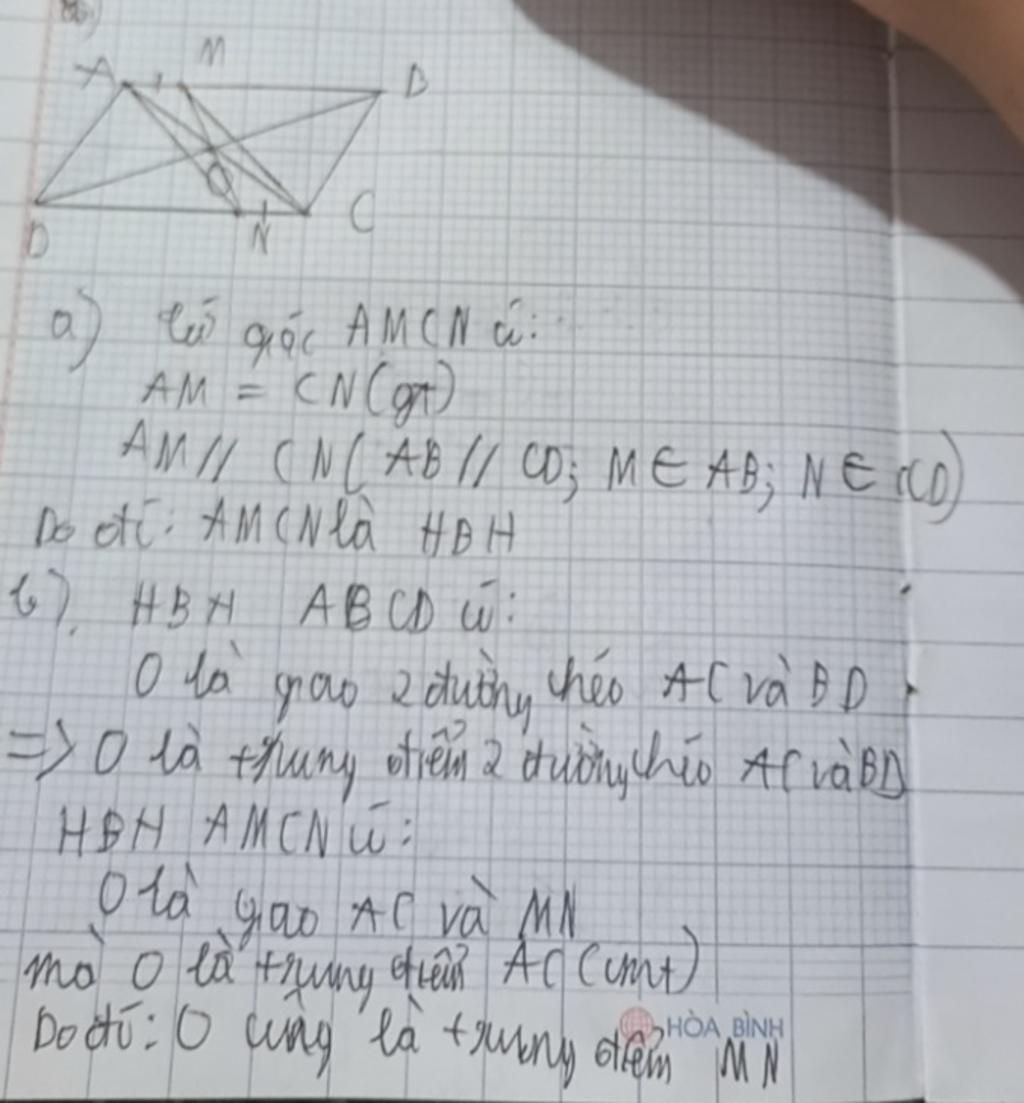 A M B
O
D N C
a) tứ giác AMCN có:
AM = CN (gt)
AM // CN ( AB // CD; M ∈ AB; N ∈ CD)
Do đó: AMCN là HBH
b). HBH ABCD có:
O là giao 2 đường chéo AC và BD
=> O là trung điểm 2 đường chéo AC và BD
HBH AMCN có:
O là giao AC và MN
mà O là trung điểm AC (cmt)
HÒA BÌNH
Do đó: O cũng là trung điểm MN